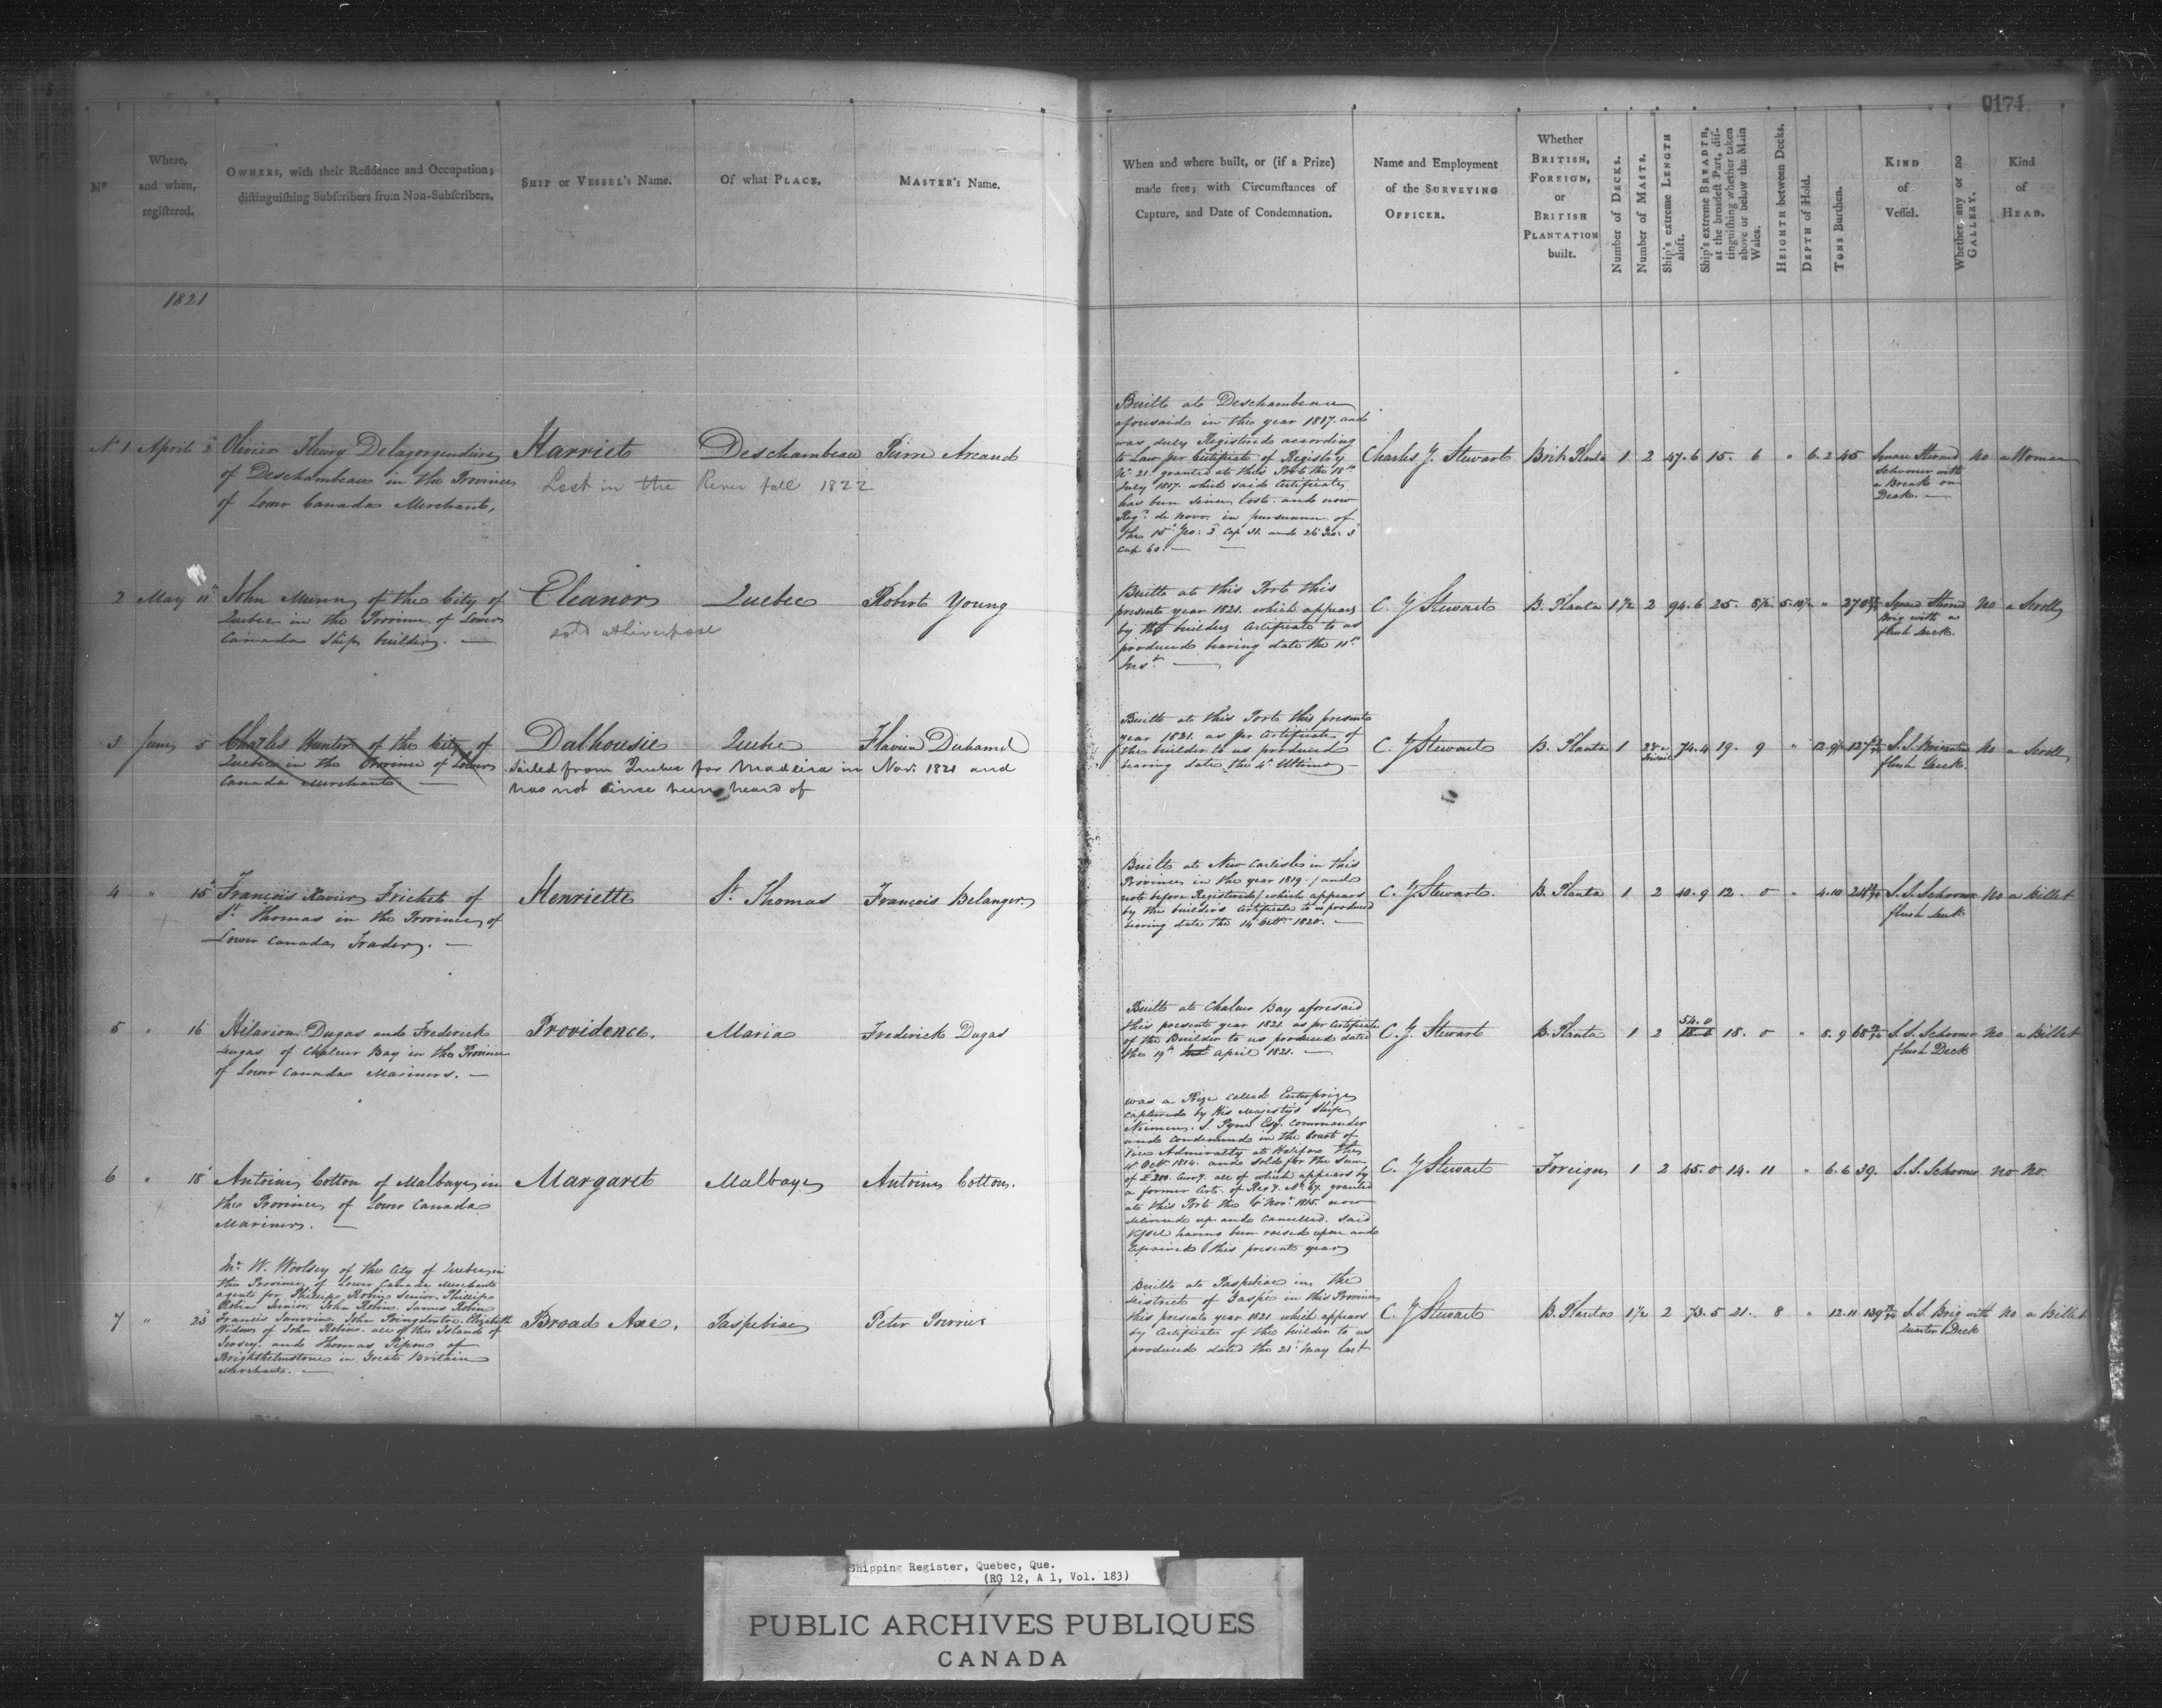 0174
Nº
Where, and when, registered.
OWNERS, with their Residence and Occupation; distinguishing Subscribers from Non-Subscribers.
SHIP or VESSEL's Name.
Of what PLACE.
MASTER's Name.
When and where built, or (if a Prize) made free; with Circumstances of Capture, and Date of Condemnation.
Name and Employment of the SURVEYING OFFICER.
Whether BRITISH, FOREIGN, or BRITISH PLANTATION built.
Number of DECKS.
Number of MASTS.
Ship's extreme LENGTH aloft.
Ship's extreme BREADTH, at the broadest Part, distinguishing whether taken above or below the Main Wales.
HEIGHTH between Decks.
DEPTH of Hold.
TONS Burthen.
KIND of Vessel.
Whether any or no GALLERY.
Kind of HEAD.
1821
Nº 1 April
Olivier Fleury Delagorgendiere
of Deschambeau in the Province
of Lower Canada Merchant,
Harriet
Lost in the River fall 1822
Deschambeau
Pierre Arcand
Built at Deschambeau
aforesaid in the year 1817. and
was duly Registered according
to Law per Certificate of Registry
Nº 21. granted at this Port the 18th
July 1817. which said Certificate
has been since lost. and now
Regd. de novo. in pursuance of
the 15 Geo: 2 Cap 31. and 26 Geo: 3
Cap 60. —
Charles G. Stewart
Brit. Planta 1 2 47. 6 15. 6 " 6. 2 45
Square Sterned
Schooner with
a Break on
Deck. —
no a Woman
2 May 11th
John Munn of the City of
Quebec in the Province of Lower
Canada Ship builder. —
Eleanor
sold at Liverpool
Quebec
Robert Young
Built at this Port this
present year 1821. which appears
by the builders Certificate to us
produced bearing date the 11th
Inst. —
C. G Stewart
B. Planta 1 1/2 2 94. 6 25. 8 1/2 5. 10 1/2 " 270
Square Sterned
Brig with a
flush Deck.
No a Scroll
3 June 5
Charles Hunter of the City of
Quebec in the Province of Lower
Canada Merchant —
Dalhousie
Sailed from Quebec for Madeira in Nov. 1821 and
has not since been heard of
Quebec
Flavien Duhamel
Built at this Port this present
year 1821. as per Certificate of
the builder to us produced
bearing date the 4th Ultimo —
C. G Stewart
B. Planta 1 74. 4 19. 9 " 12. 9 127
S. S. Brigantine
flush Deck.
No a Scroll
4 " 15
François Xavier Frichet of
St. Thomas in the Province of
Lower Canada Trader. —
Henriette
St. Thomas
François Belanger
Built at New Carlisle in this
Province in the year 1819. / and
not before Registered / which appears
by the builders Certificate to us produced
bearing date the 14 Octr. 1820. —
C. G. Stewart.
B. Planta 1 2 40. 9 12. 0 " 4. 10 24
S. S. Schooner
flush Deck
No a billet
5 " 16
Hilarion Dugas and Frederick
Dugas of Chaleur Bay in the Province
of Lower Canada Mariners. —
Providence.
Maria
Frederick Dugas
Built at Chaleur Bay aforesaid
this present year 1821. as per Certificate
of the Builder to us produced dated
the 19th April 1821. —
C. G. Stewart
B. Planta 1 2 54. 0 18. 0 " 8. 9 68
S. S. Schooner
flush Deck
No a Billet
6 " 18
Antoine Cotton of Malbaye in
the Province of Lower Canada
Mariner. —
Margaret
Malbaye
Antoine Cotton.
was a Prize called Enterprize
captured by His Majesty's Ship
Niemen. S. Pym Esq. commander
and condemned in the Court of
Vice Admiralty at Halifax the
Octr. 1814. and sold for the Sum
of £200. Curry. all of which appears by
a former Certe. of Regy. Nº 67. granted
at this Port the 6 Novr. 1815. now
delivered up and Cancelled. said
Vessel having been raised upon and
repaired this present year
C. G Stewart
Foreign 1 2 45. 0 14. 11 " 6. 6 39.
S. S. Schooner no No.
7 " 23
Mr W. Woolsey of the City of Quebec in
the Province of Lower Canada Merchant
agent for Phillip Robin Senior. Phillip
Robin Junior. John Robin. James Robin
Francis Janvrin. John Poingdestre. Elizabeth
Widow of John Robin. all of the Island of
Jersey. and Thomas Pipon of
Brighthelmstone in Great Britain
Merchants. —
Broad Axe.
Paspebiac
Peter Poirrier
Built at Paspebiac in the
district of Gaspé in this Province
this present year 1821 which appears
by Certificate of the builder to us
produced dated the 21st May last
C. G Stewart
B. Planta 1 1/2 2 73. 5 21. 8 " 12. 11 139
S. S. Brig with
Quarter Deck
No a Billet
Shipping Register, Quebec, Que.
(RG 12, A 1, Vol. 183)
PUBLIC ARCHIVES PUBLIQUES
CANADA